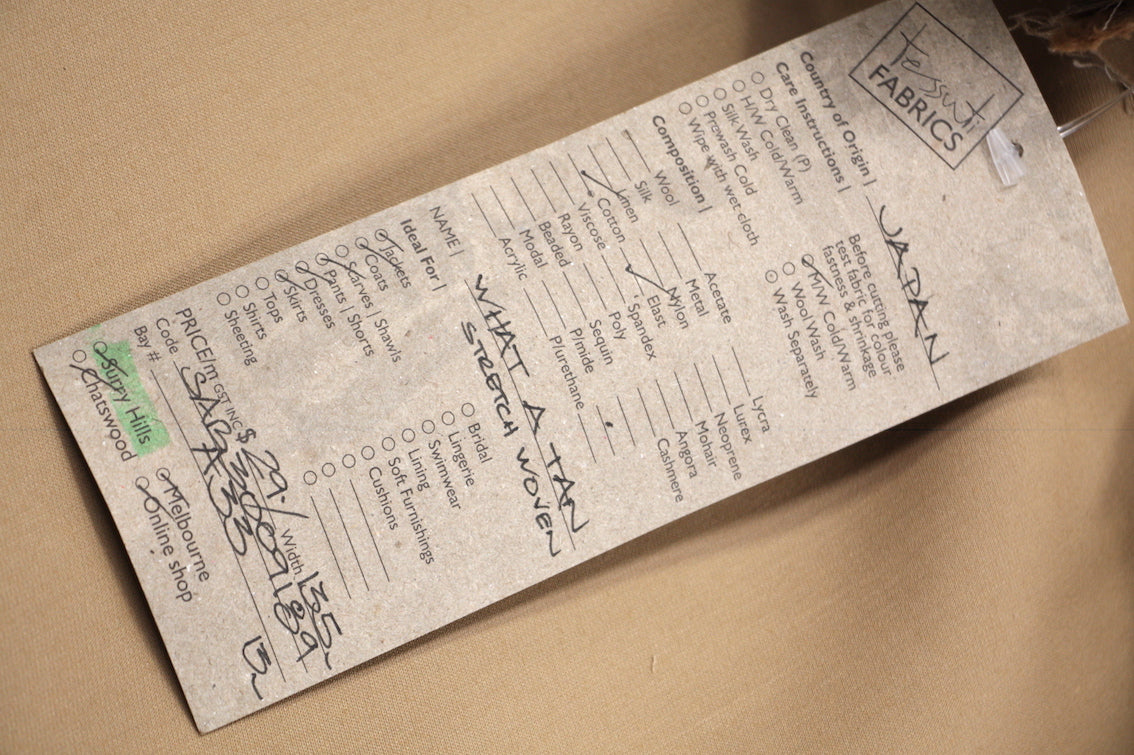 tessuti
FABRICS
Country of Origin | JAPAN
Care Instructions |
Dry Clean (P)
H/W Cold/Warm
Silk Wash
Prewash Cold
Wipe with wet cloth
Before cutting please
test fabric for colour
fastness & shrinkage
M/W Cold/Warm
Wool Wash
Wash Separately
Composition |
Wool
Silk
Linen
Cotton
Viscose
Rayon
Beaded
Modal
Acrylic
Acetate
Metal
Nylon
Elast
Spandex
Poly
Sequin
P/mide
P/urethane
Lycra
Lurex
Neoprene
Mohair
Angora
Cashmere
NAME | WHAT A TAN
STRETCH WOVEN
Ideal For |
Jackets
Coats
Scarves | Shawls
Pants | Shorts
Dresses
Skirts
Tops
Shirts
Sheeting
Bridal
Lingerie
Swimwear
Lining
Soft Furnishings
Cushions
PRICE/m GST INC $ 29./ Width 135
Code
Bay # A33
Surry Hills
Chatswood
Melbourne
Online shop